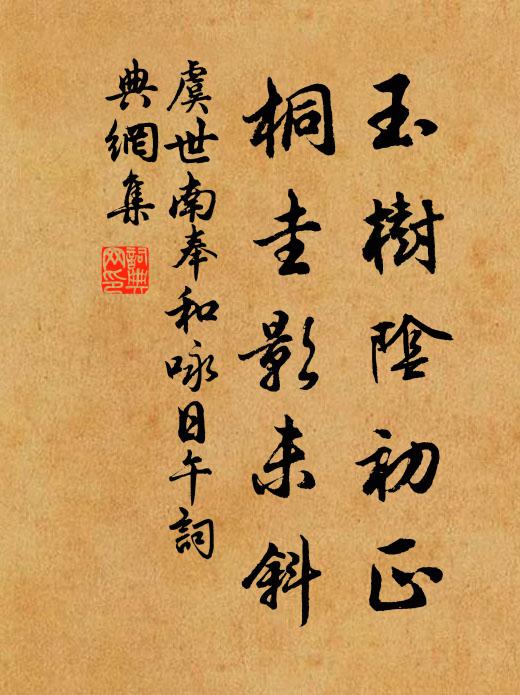 玉樹陰初正
桐圭影未斜
虞世南奉和咏日午詞
典網集
詞典
网印